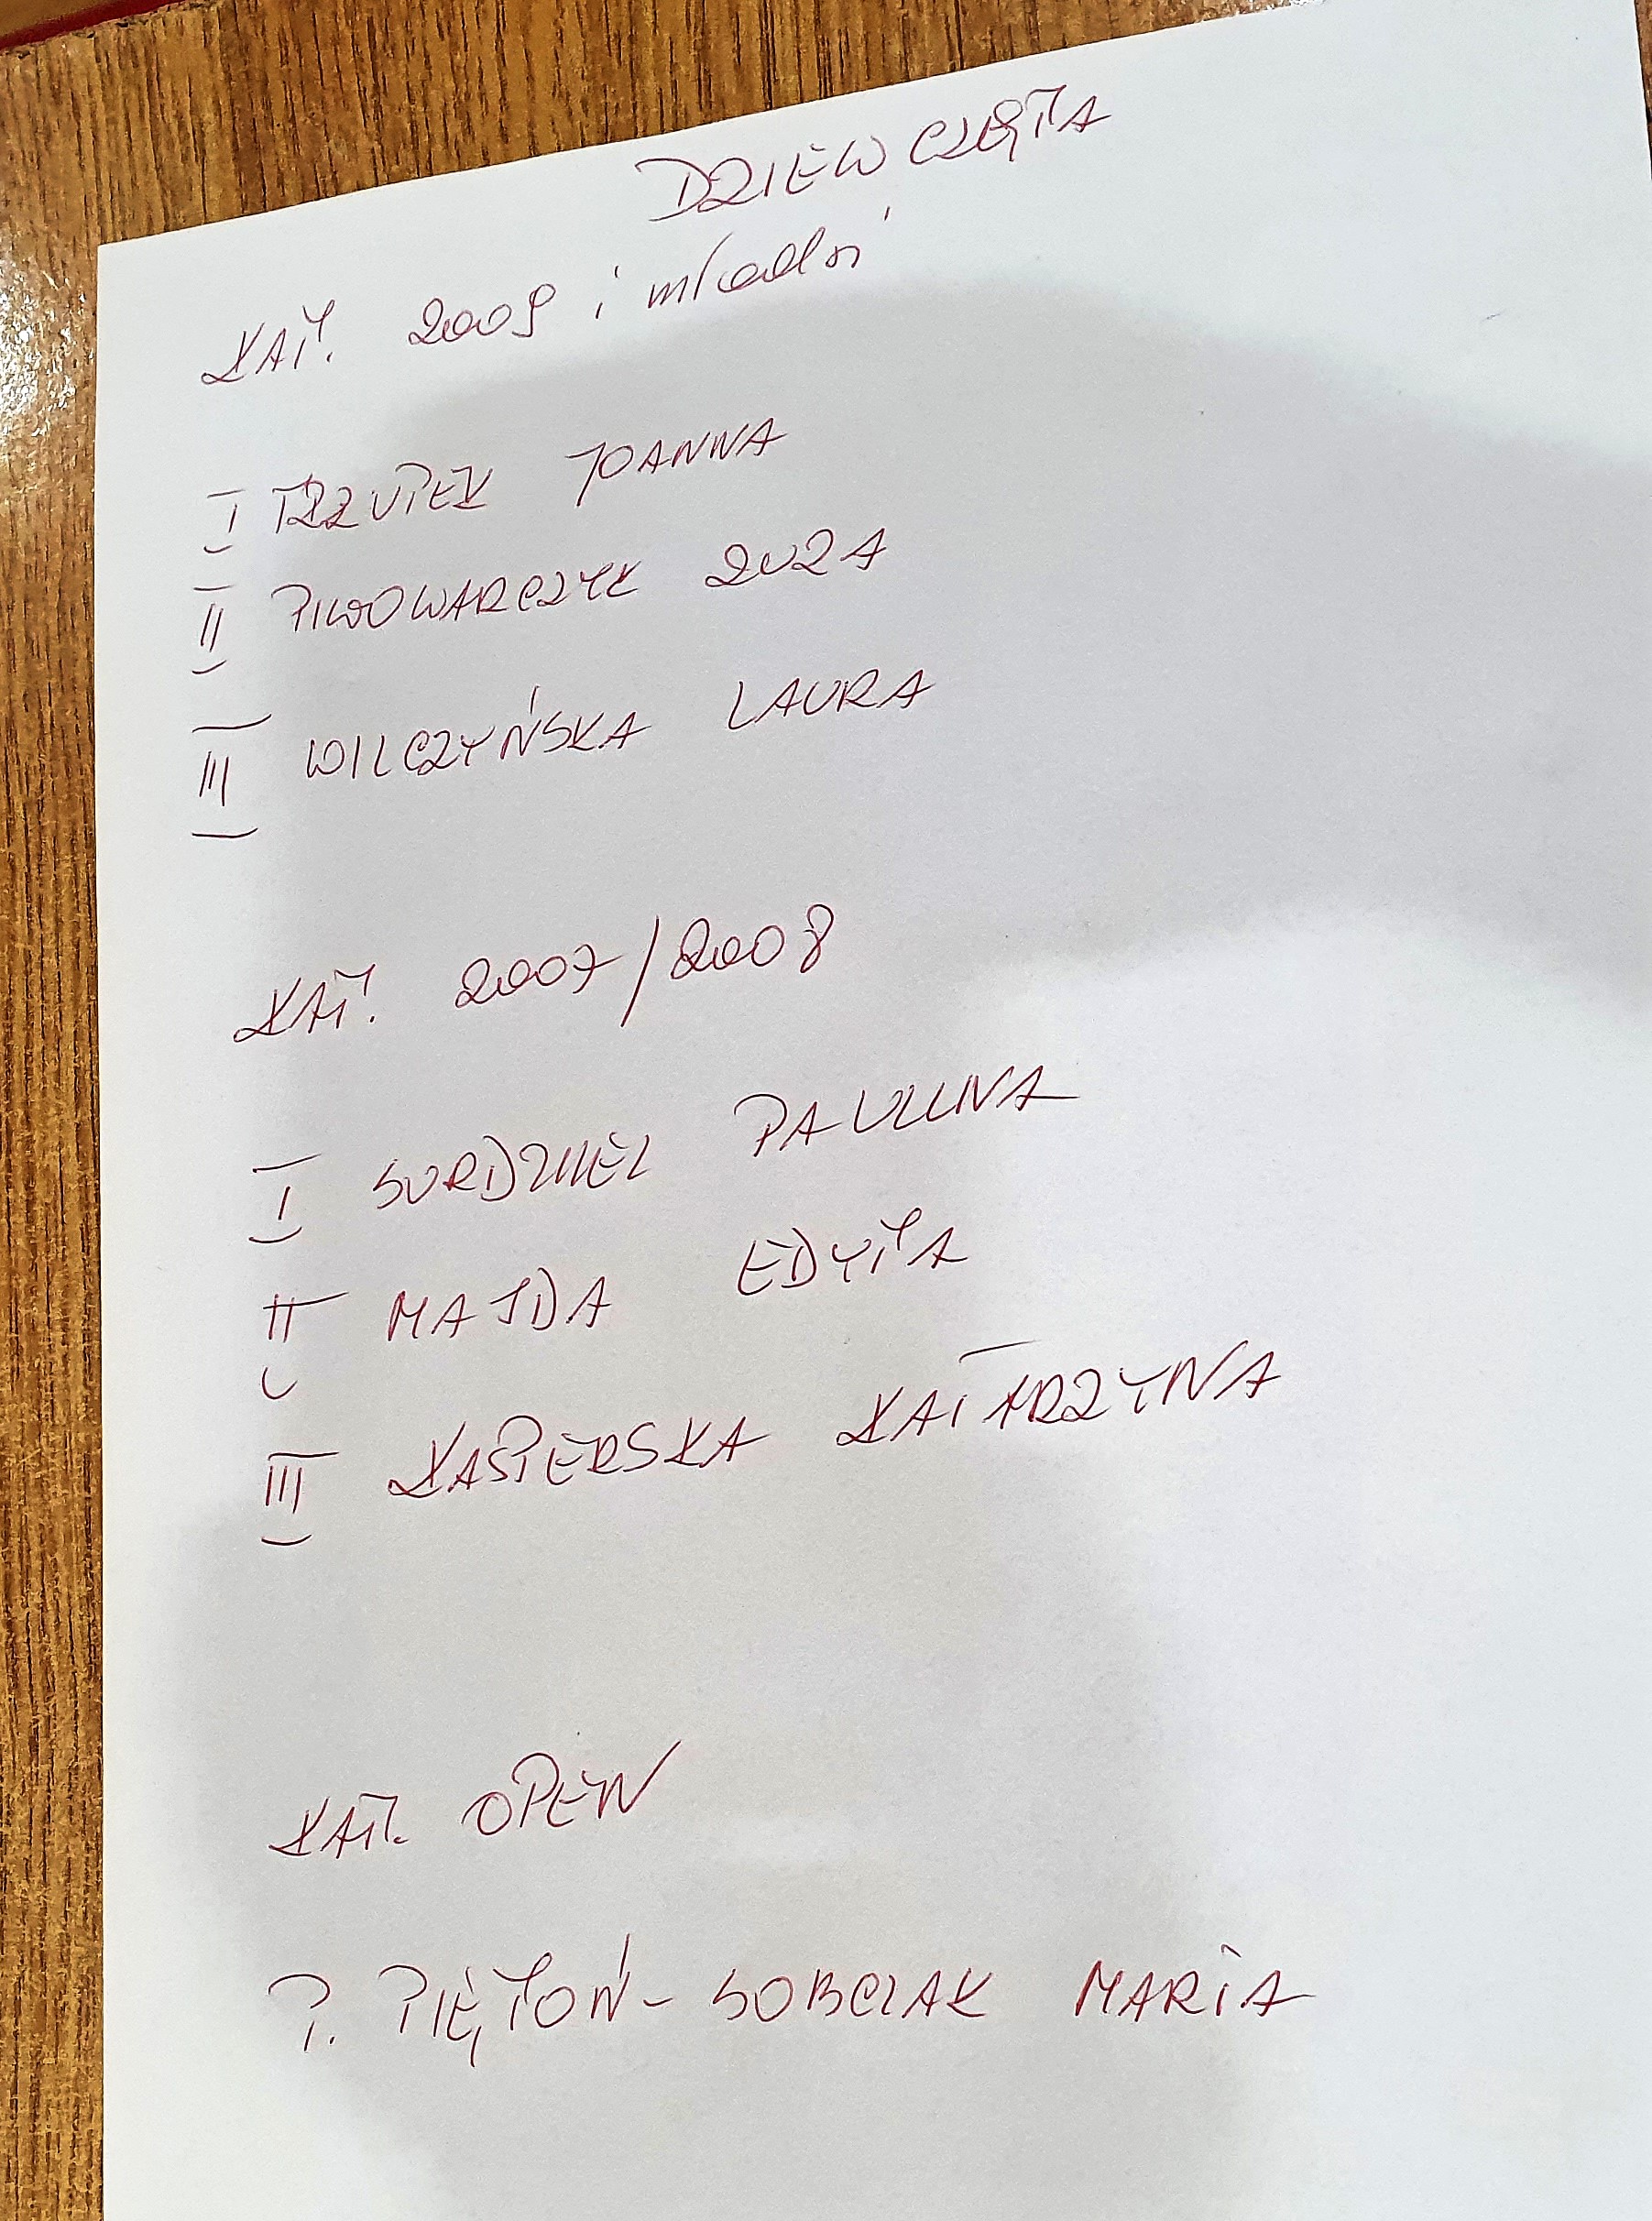 DZIEWCZĘTA
KAT. 2009 i młodsi
I TRZUPEK JOANNA
II PIWOWARCZYK ZUZA
III WILCZYŃSKA LAURA
KAT. 2007/2008
I SURDZIEL PAULINA
II MAJDA EDYTA
III KASPERSKA KATARZYNA
KAT. OPEN
P. PIĘTOŃ-SOBCZAK MARIA